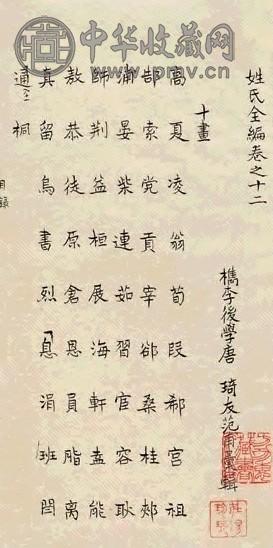 中华收藏网
www.pmv.cn
姓氏全編卷之十二
檇李後學唐 琦友范甫 輯
十畫
高夏凌翁荀段郗宮祖
郜索党貢宰郤桑桂郟
晏柴連茹習容耿
師荆益桓展海軒盍能
敖恭徒原倉恩員脂离
真留烏書烈息涓班閆
通 桐